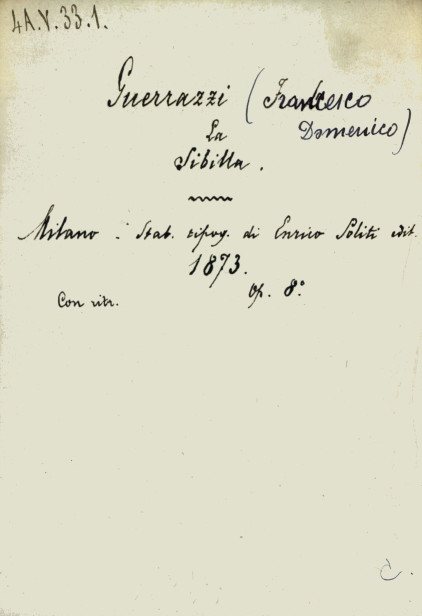 4A.V.33.1.
Guerrazzi (Francesco
Domenico)
La
Sibilla.
Milano - Stab. tipog. di Enrico Politi edit.
1873.
Con ritr. Op. 8.°
C.